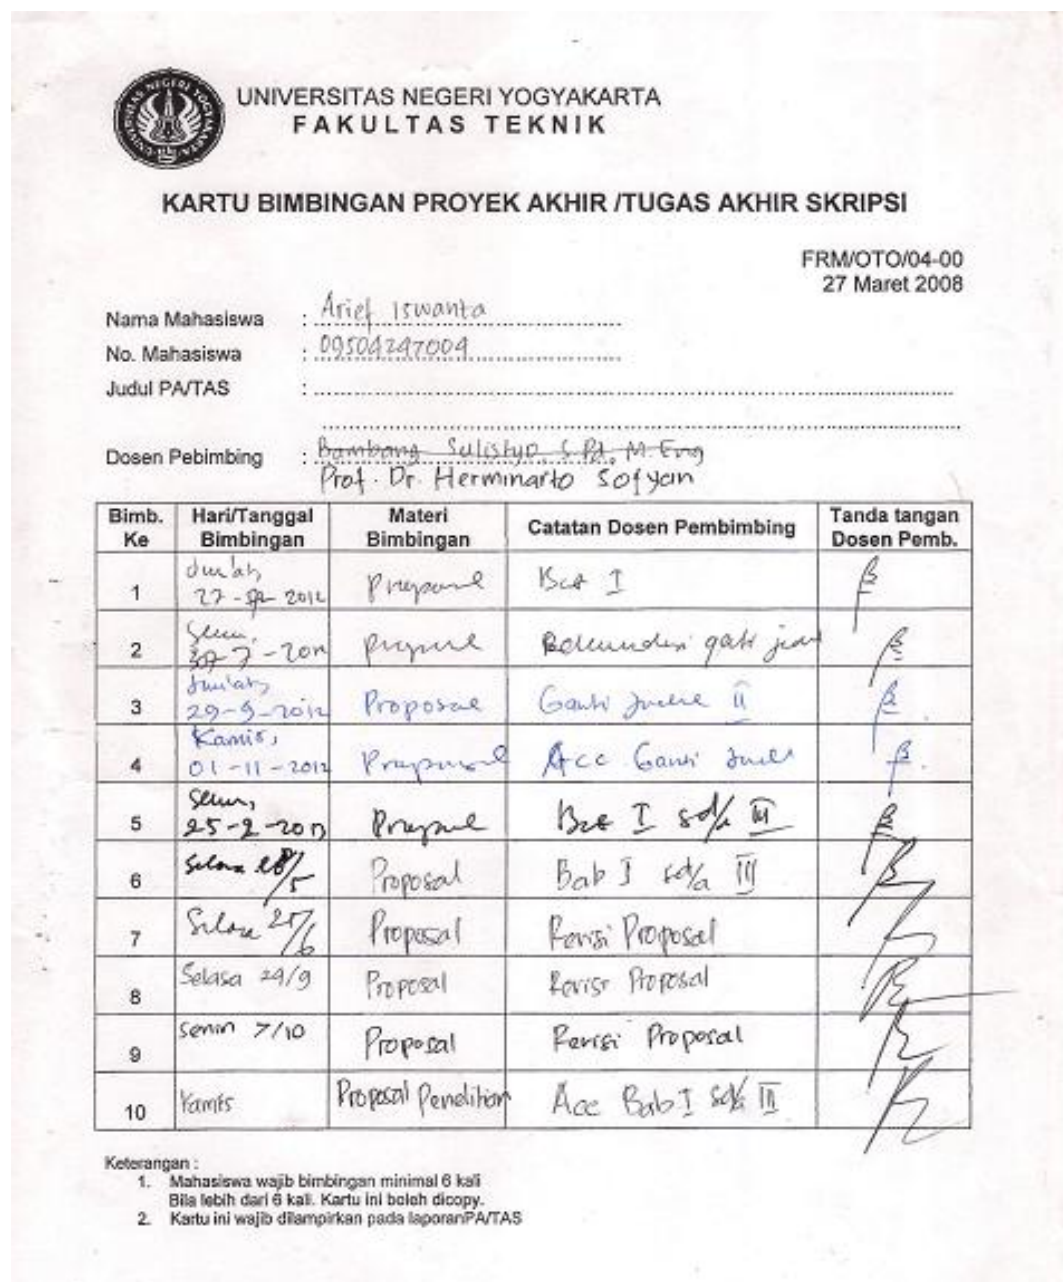 UNIVERSITAS NEGERI YOGYAKARTA
FAKULTAS TEKNIK
KARTU BIMBINGAN PROYEK AKHIR /TUGAS AKHIR SKRIPSI
FRM/OTO/04-00
27 Maret 2008
Nama Mahasiswa : Arief Iswanta
No. Mahasiswa : 09504247009
Judul PA/TAS :
Dosen Pebimbing : Bambang Sulistyo, S.Pd, M.Eng
Prof. Dr. Herminarto Sofyan
Bimb. Ke Hari/Tanggal Bimbingan Materi Bimbingan Catatan Dosen Pembimbing Tanda tangan Dosen Pemb.
1 2012 Proposal Bab I
2 Proposal
3 29-9-2012 Proposal Ganti II
4 Kamis, 01-11-2012 Proposal Acc Ganti
5 25-2-2013 Proposal Bab I sd/a III
6 Selasa 28/5 Proposal Bab I sd/a III
7 Selasa 25/6 Proposal Revisi Proposal
8 Selasa 24/9 Proposal Revisi Proposal
9 Senin 7/10 Proposal Revisi Proposal
10 Kamis Proposal Penelitian Acc Bab I sd/a III
Keterangan :
1. Mahasiswa wajib bimbingan minimal 6 kali
Bila lebih dari 6 kali. Kartu ini boleh dicopy.
2. Kartu ini wajib dilampirkan pada laporanPA/TAS